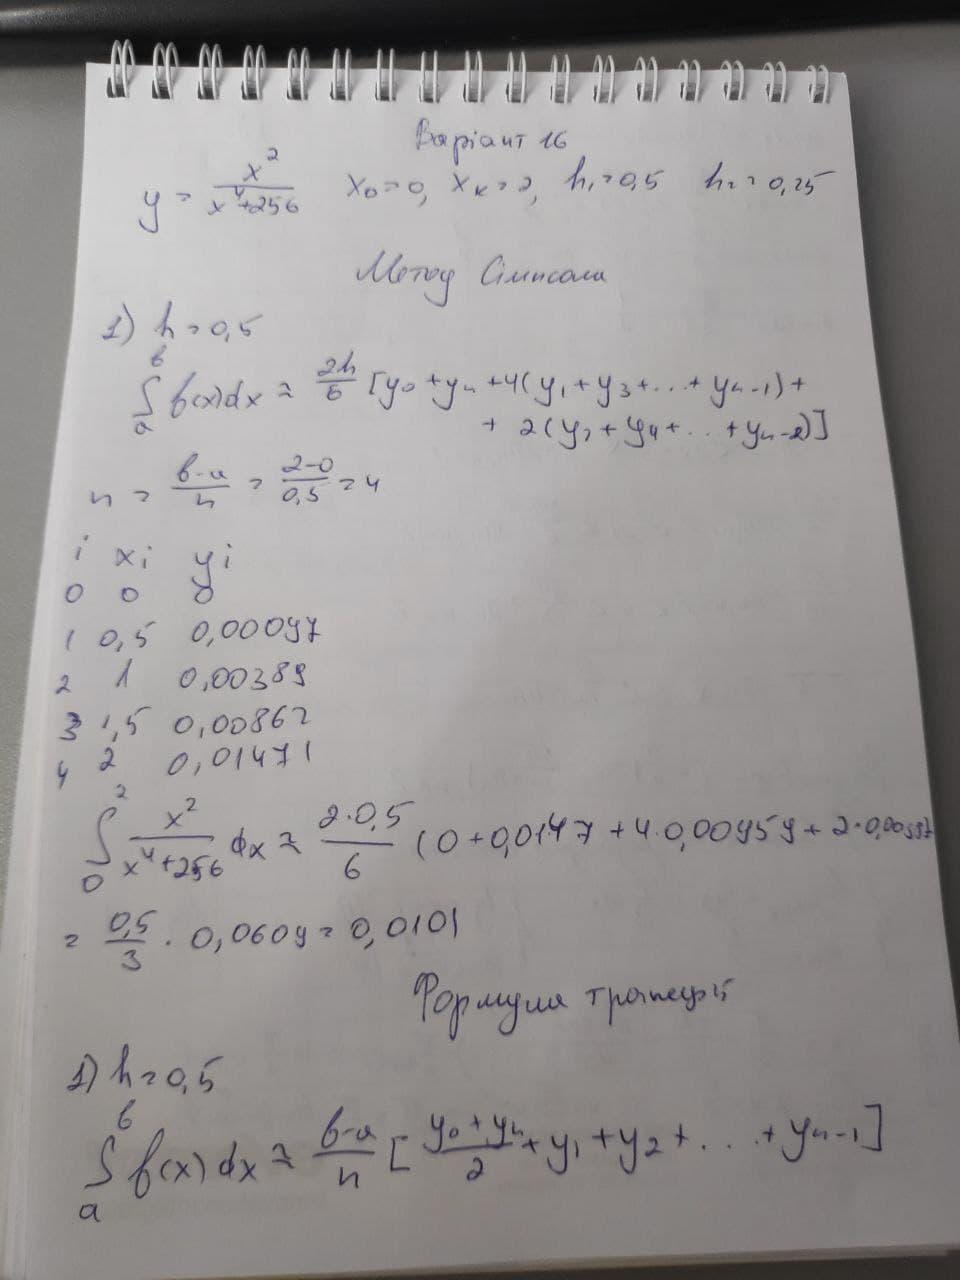 Варіант 16
y = x²/(x⁴+256) x₀=0, xₖ=2, h₁=0,5 h₂=0,25
Метод Сімпсона
1) h=0,5
∫ₐᵇ f(x)dx ≈ 2h/6 [y₀+yₙ+4(y₁+y₃+...+yₙ₋₁)+
+ 2(y₂+y₄+...+yₙ₋₂)]
n = (b-a)/h = (2-0)/0,5 = 4
i xi yi
0 0 0
1 0,5 0,00097
2 1 0,00389
3 1,5 0,00862
4 2 0,01471
∫₀² x²/(x⁴+256) dx ≈ (2·0,5)/6 (0+0,0147+4·0,00959+2·
= 0,5/3 · 0,0609 = 0,0101
Формула трапецій
1) h=0,5
∫ₐᵇ f(x)dx ≈ (b-a)/n [(y₀+yₙ)/2+y₁+y₂+...+yₙ₋₁]